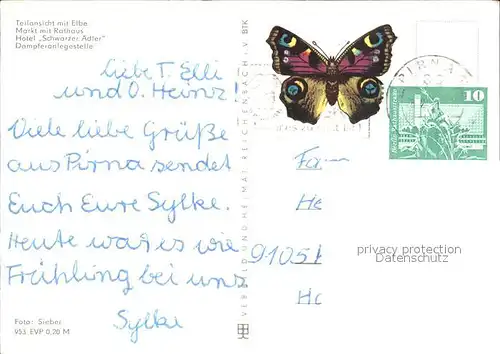 Teilansicht mit Elbe
Markt mit Rathaus
Hotel „Schwarzer Adler"
Dampferanlegestelle
Liebe T. Elli
und O. Heinz!
Viele liebe Grüße
aus Pirna sendet
Euch Eure Sylke.
Heute war es wie
Frühling bei uns
Sylke
Foto: Sieber
953 EVP 0,20 M
VEB BILD UND HEIMAT REICHENBACH i. V. BTK
PIRNA
10
Fam
He
9105
Ho
privacy protection
Datenschutz